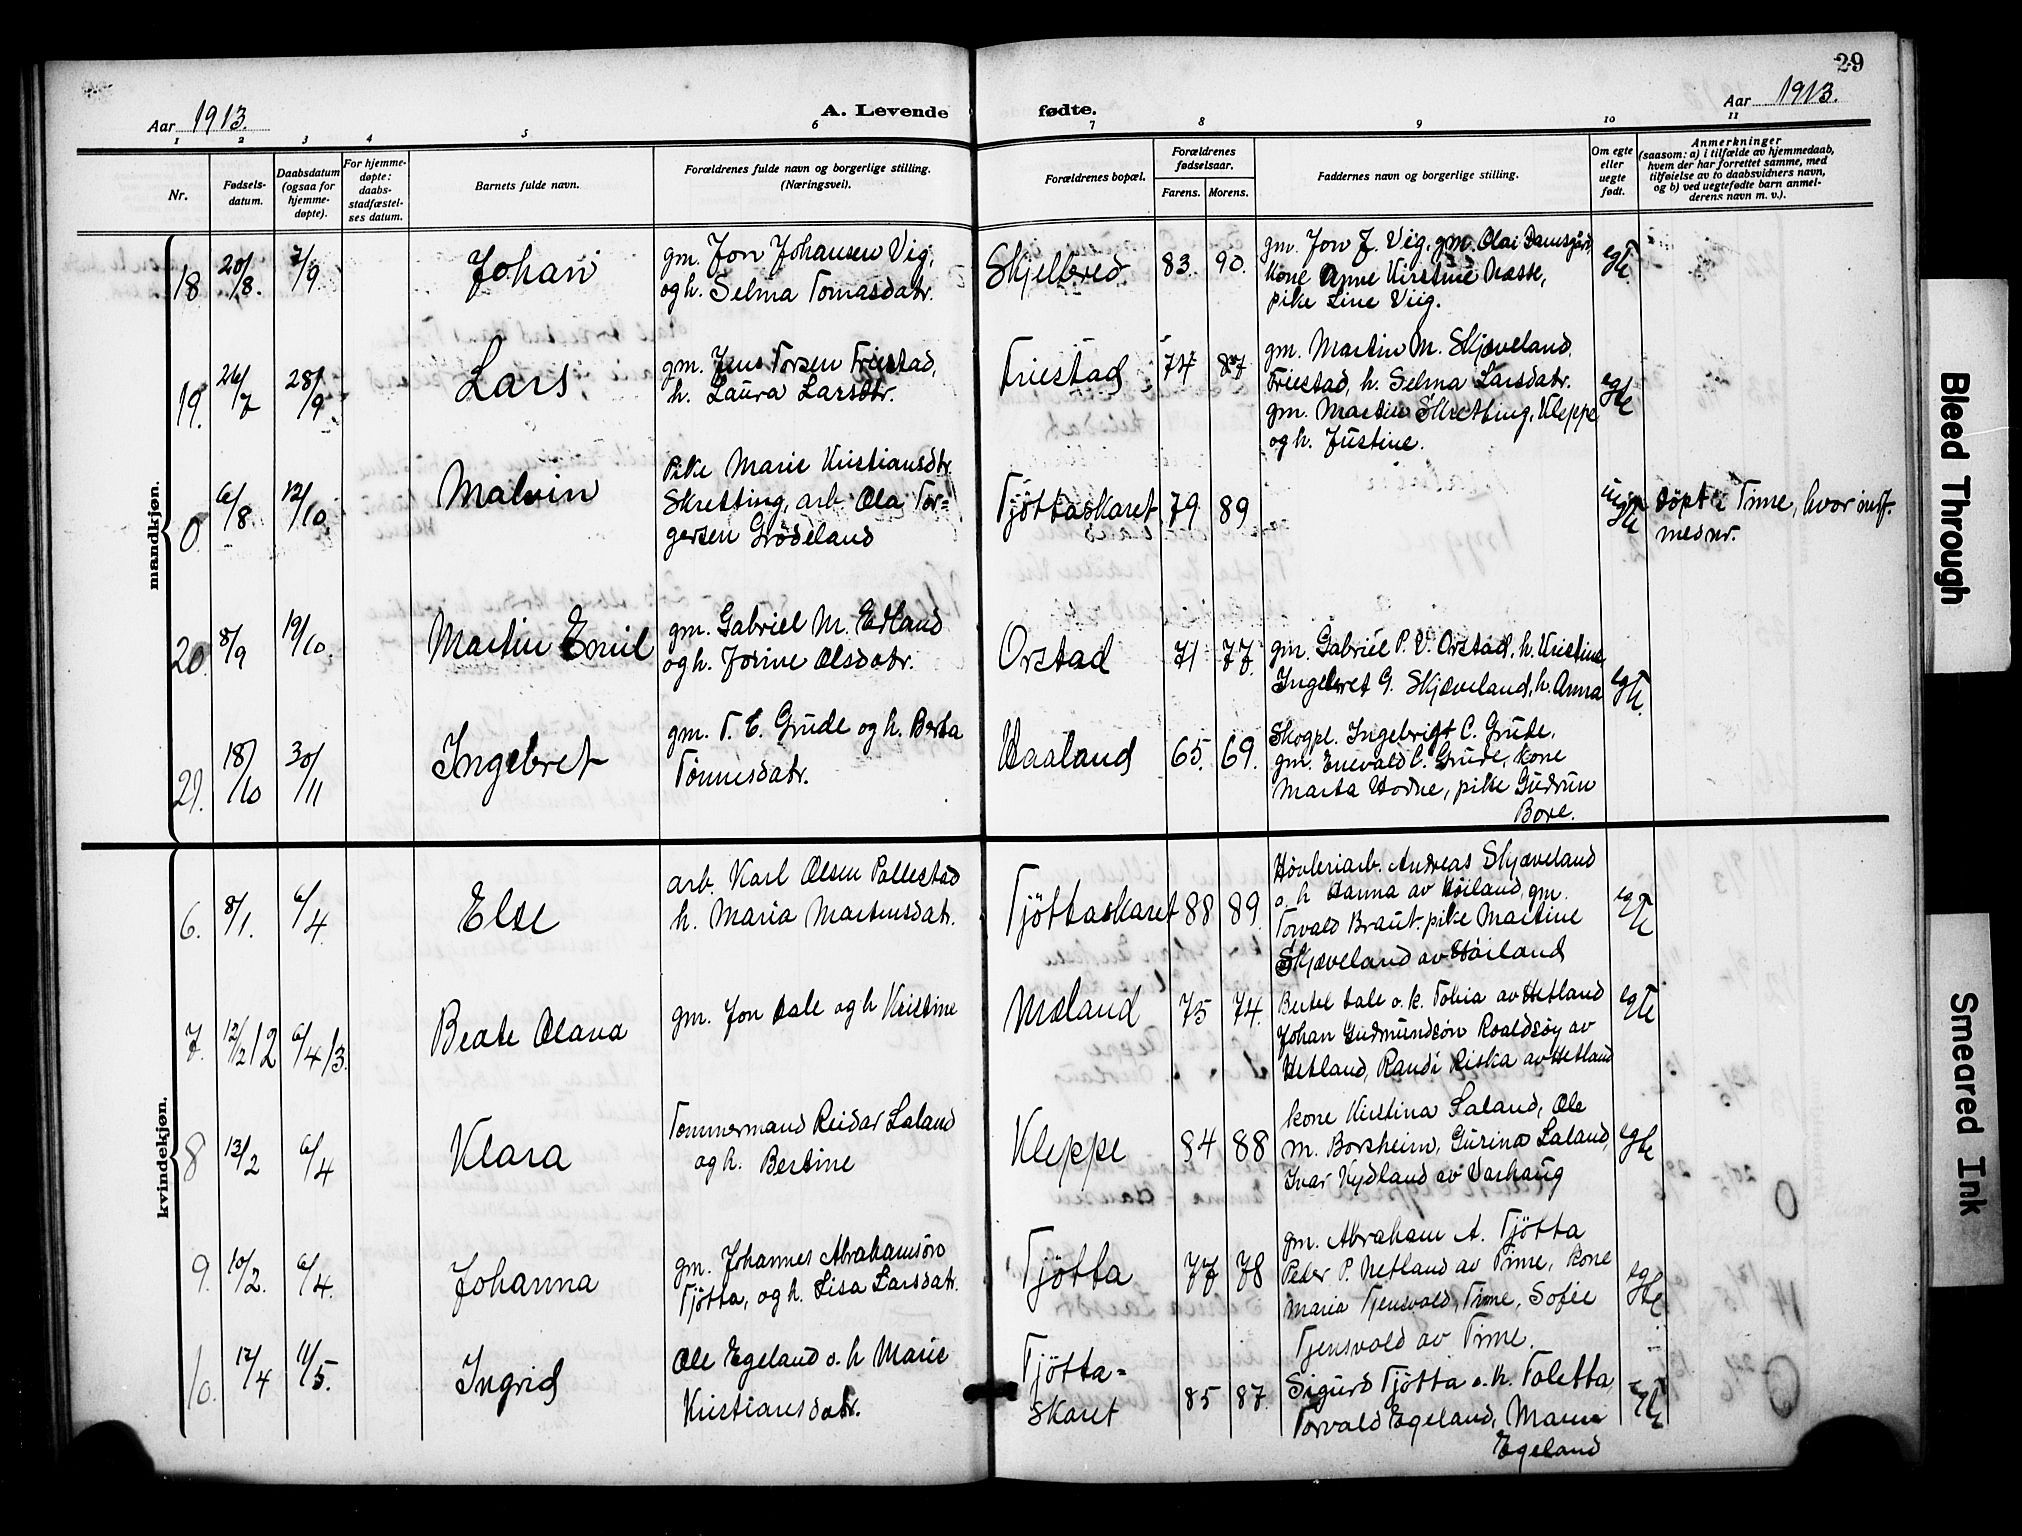 29
Aar 1913.
A. Levende
fødte.
Aar 1913.
1 2 3 4 5 6 7 8 9 10 11
Nr.
Fødsels-
datum.
Daabsdatum
(ogsaa for
hjemme-
døpte).
For hjemme-
døpte:
daabs-
stadfæstel-
ses datum.
Barnets fulde navn.
Forældrenes fulde navn og borgerlige stilling.
(Næringsvei).
Forældrenes bopæl.
Forældrenes
fødselsaar.
Farens. Morens.
Faddernes navn og borgerlige stilling.
Om egte
eller
uegte
født.
Anmerkninger
(saasom: a) i tilfælde av hjemmedaab,
hvem der har forrettet samme, med
tilføielse av to daabsvidners navn,
og b) ved uegtefødte barn anmel-
derens navn m. v.).
mandkjøn.
18 20/8. 7/9 Johan
gm. Jon Johansen Vig,
og h. Selma Tomasdatr.
Skjelbred 83. 90.
gm. Jon J. Vig, gm. Olai Damsgård,
kone Anne Kirstine Næsse,
pike Line Viig.
egte.
19. 26/7 28/9 Lars
gm. Jens Torsen Friestad,
h. Laura Larsdtr.
Friestad 74 87
gm. Martin M. Skjæveland
Friestad, h. Selma Larsdatr.
gm. Martin Skretting, Kleppe
og h. Justine.
egte
0. 6/8 12/10 Malvin
Pike Marie Kristiansdtr.
Skretting, arb. Ola Tor-
gersen Grødeland
Tjöttaskaret 79 89
uegte
døpt i Time, hvor indf.
med nr.
20. 8/9 19/10 Martin Emil
gm. Gabriel M. Edland
og h. Jorine Olsdatr.
Orstad 71 77.
gm. Gabriel P. V. Orstad, h. Kristine,
Ingebret G. Skjæveland, h. Anna
egte.
21. 18/10 30/11 Ingebret
gm. T. E. Grude og h. Berta
Tönnesdatr.
Haaland 65. 69.
Skogpl. Ingebrigt C. Grude,
gm. Enevald C. Grude, kone
Marta Hodne, pike Gudrun
Bore.
kvindekjøn.
6. 8/1. 6/4. Else
arb. Karl Olsen Pallestad
h. Maria Martinsdatr.
Tjöttaskaret 88 89.
Høvleriarb. Andreas Skjæveland
o. h Hanna av Höiland, gm.
Torvald Braut. pike Martine
Skjæveland av Höiland
egte
7. 12/2 12 6/4 13. Beate Olava
gm. Jon Dale og h Kristine
Mæland 75 74.
Bertel Dale o. k. Tobia av Hetland
Johan Gudmundsön Roaldsöy av
Hetland, Randi Riska av Hetland
egte
8 13/2 6/4 Klara
Tömmermand Reidar Laland
og h. Bertine
Kleppe 84 88
kone Kirstina Laland, Ole
M. Borsheim, Gurina Laland,
Ivar Kydland av Varhaug
egte
9. 10/2. 6/4. Johanna
gm. Johannes Abrahamsön
Tjötta, og h. Lisa Larsdatr.
Tjötta 77 78
gm. Abraham A. Tjötta
Peder P. Netland av Time, kone
Maria Tjensvold, Time, Sofie
Tjensvold av Time.
egte
10. 12/4 11/5. Ingrid
Ole Egeland o. h Marie
Kristiansdatr.
Tjötta-
skaret 85 87.
Sigurd Tjötta o. h. Toletta
Torvald Egeland, Maren
Egeland
egte
Bleed Through
Smeared Ink